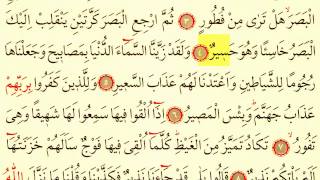 الْبَصَرَ هَلْ تَرَى مِنْ فُطُورٍ ﴿٣﴾ ثُمَّ ارْجِعِ الْبَصَرَ كَرَّتَيْنِ يَنْقَلِبْ اِلَيْكَ
الْبَصَرُ خَاسِئًا وَهُوَ حَسِيرٌ ﴿٤﴾ وَلَقَدْ زَيَّنَّا السَّمَاءَ الدُّنْيَا بِمَصَابِيحَ وَجَعَلْنَاهَا
رُجُومًا لِلشَّيَاطِينِ وَاَعْتَدْنَا لَهُمْ عَذَابَ السَّعِيرِ ﴿٥﴾ وَلِلَّذِينَ كَفَرُوا بِرَبِّهِمْ
عَذَابُ جَهَنَّمَ وَبِئْسَ الْمَصِيرُ ﴿٦﴾ اِذَا اُلْقُوا فِيهَا سَمِعُوا لَهَا شَهِيقًا وَهِيَ
تَفُورُ ﴿٧﴾ تَكَادُ تَمَيَّزُ مِنَ الْغَيْظِ كُلَّمَا اُلْقِيَ فِيهَا فَوْجٌ سَاَلَهُمْ خَزَنَتُهَا
اَلَمْ يَأْتِكُمْ نَذِيرٌ ﴿٨﴾ قَالُوا بَلَى قَدْ جَاءَنَا نَذِيرٌ فَكَذَّبْنَا وَقُلْنَا مَا نَزَّلَ اللّٰهُ